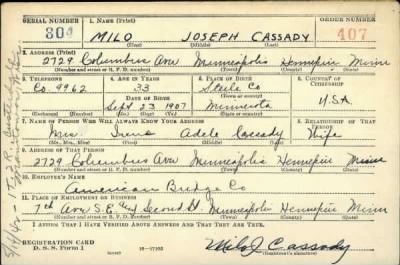 SERIAL NUMBER 1. NAME (Print) ORDER NUMBER
304 MILO JOSEPH CASSADY 407
(First) (Middle) (Last)
2. ADDRESS (Print)
2729 Columbus Ave Minneapolis Hennepin Minn
(Number and street or R. F. D. number) (Town) (County) (State)
3. TELEPHONE 4. AGE IN YEARS 5. PLACE OF BIRTH 6. COUNTRY OF CITIZENSHIP
Co. 9962 33 Steele Co
DATE OF BIRTH
Sept 23 1907 Minnesota U.S.A
(Exchange) (Number) (Mo.) (Day) (Yr.) (State or country)
7. NAME OF PERSON WHO WILL ALWAYS KNOW YOUR ADDRESS 8. RELATIONSHIP OF THAT PERSON
Mrs. Adele Cassady Wife
(Mr., Mrs., Miss) (First) (Middle) (Last)
9. ADDRESS OF THAT PERSON
2729 Columbus Ave Minneapolis Hennepin Minn
(Number and street or R. F. D. number) (Town) (County) (State)
10. EMPLOYER'S NAME
American Bridge Co
11. PLACE OF EMPLOYMENT OR BUSINESS
7th Ave S.E. and Second St. Minneapolis Hennepin Minn
(Number and street or R. F. D. number) (Town) (County) (State)
I AFFIRM THAT I HAVE VERIFIED ABOVE ANSWERS AND THAT THEY ARE TRUE.
REGISTRATION CARD
D. S. S. Form 1 Milo J Cassady
(Registrant's signature)